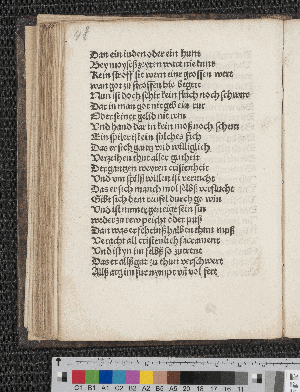 48
Dan ein iuden oder ein hunt
Bey moyses zeyten ware nie kunt
Kein stroff sie wern eine grossen wert
wan got zu stroffen hie begert
Nun ist doch schir kein fluch noch schwur
Dar in man got nit geb ein
Oder seiner gelid nit
Und hand dar in kein moß noch scheu
Ein spiler ist ein solches fich
Das er sich gantz und williglich
Verzeihen thut aller gutheit
Der gantzen weyten cristenheit
Und um spilß willen ist verrucht
Das er sich manch mol selbß verflucht
Gibt sich dem teufel durch gewin
Und ist nimer geneigt sein sin
weder zu rew peycht oder puß
Dan was er scheinß halben thun muß
Veracht all cristenlich sacrament
Und ist yn im selbß so
Das er alß gut zu thun verschwert
Alß arg im fur nympt und vol fert
C1 B1 A1 C2 B2 A2 B5 A5 20 18 17 16 11